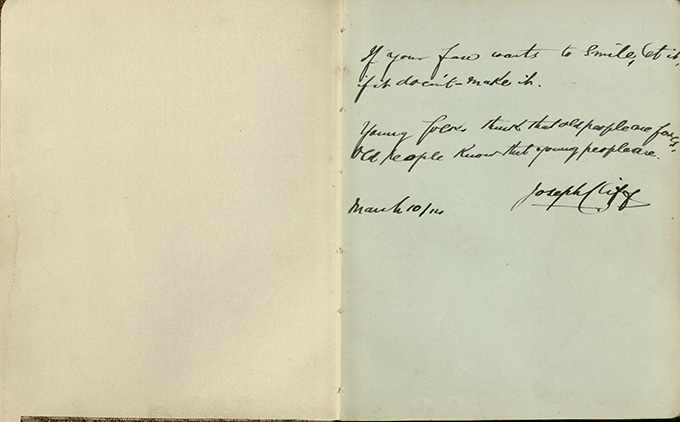 If your face wants to smile, let it,
if it doesn't - make it.
Young folks think that old people are fools.
Old people know that young people are.
Joseph Cliff
March 10/14